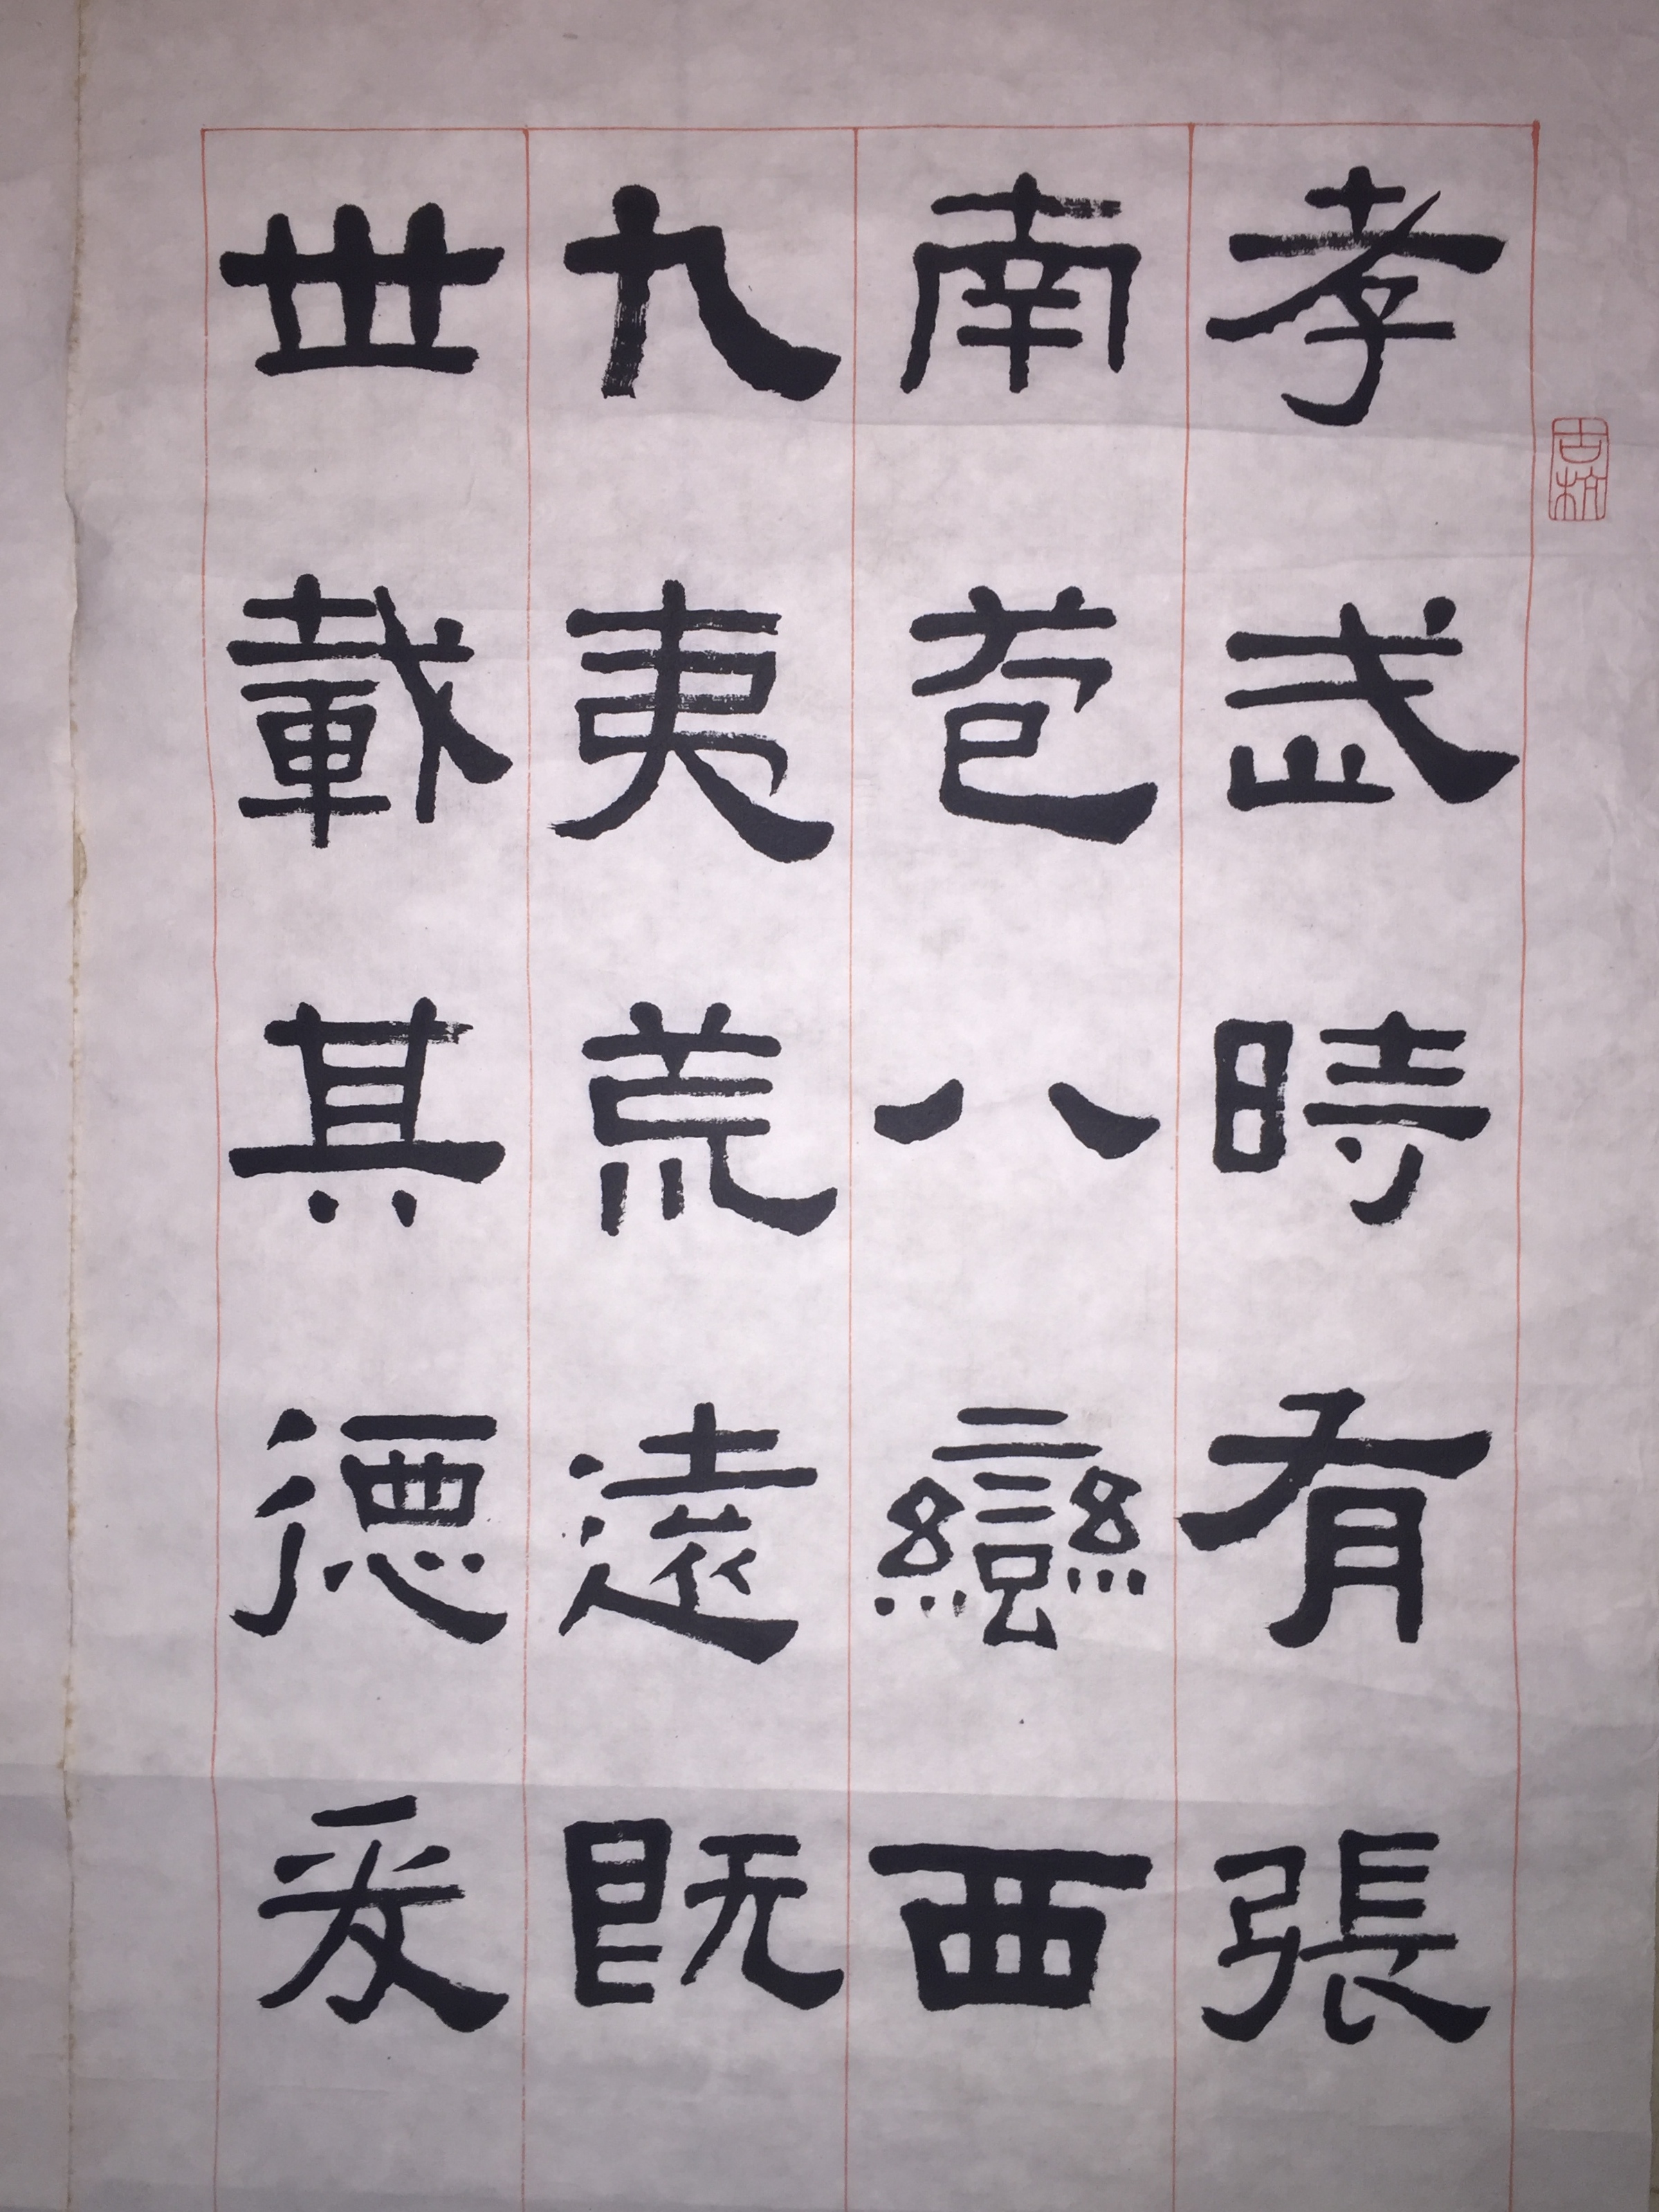 孝武時有張
南苞八蠻西
九夷荒遠既
世載其德爰